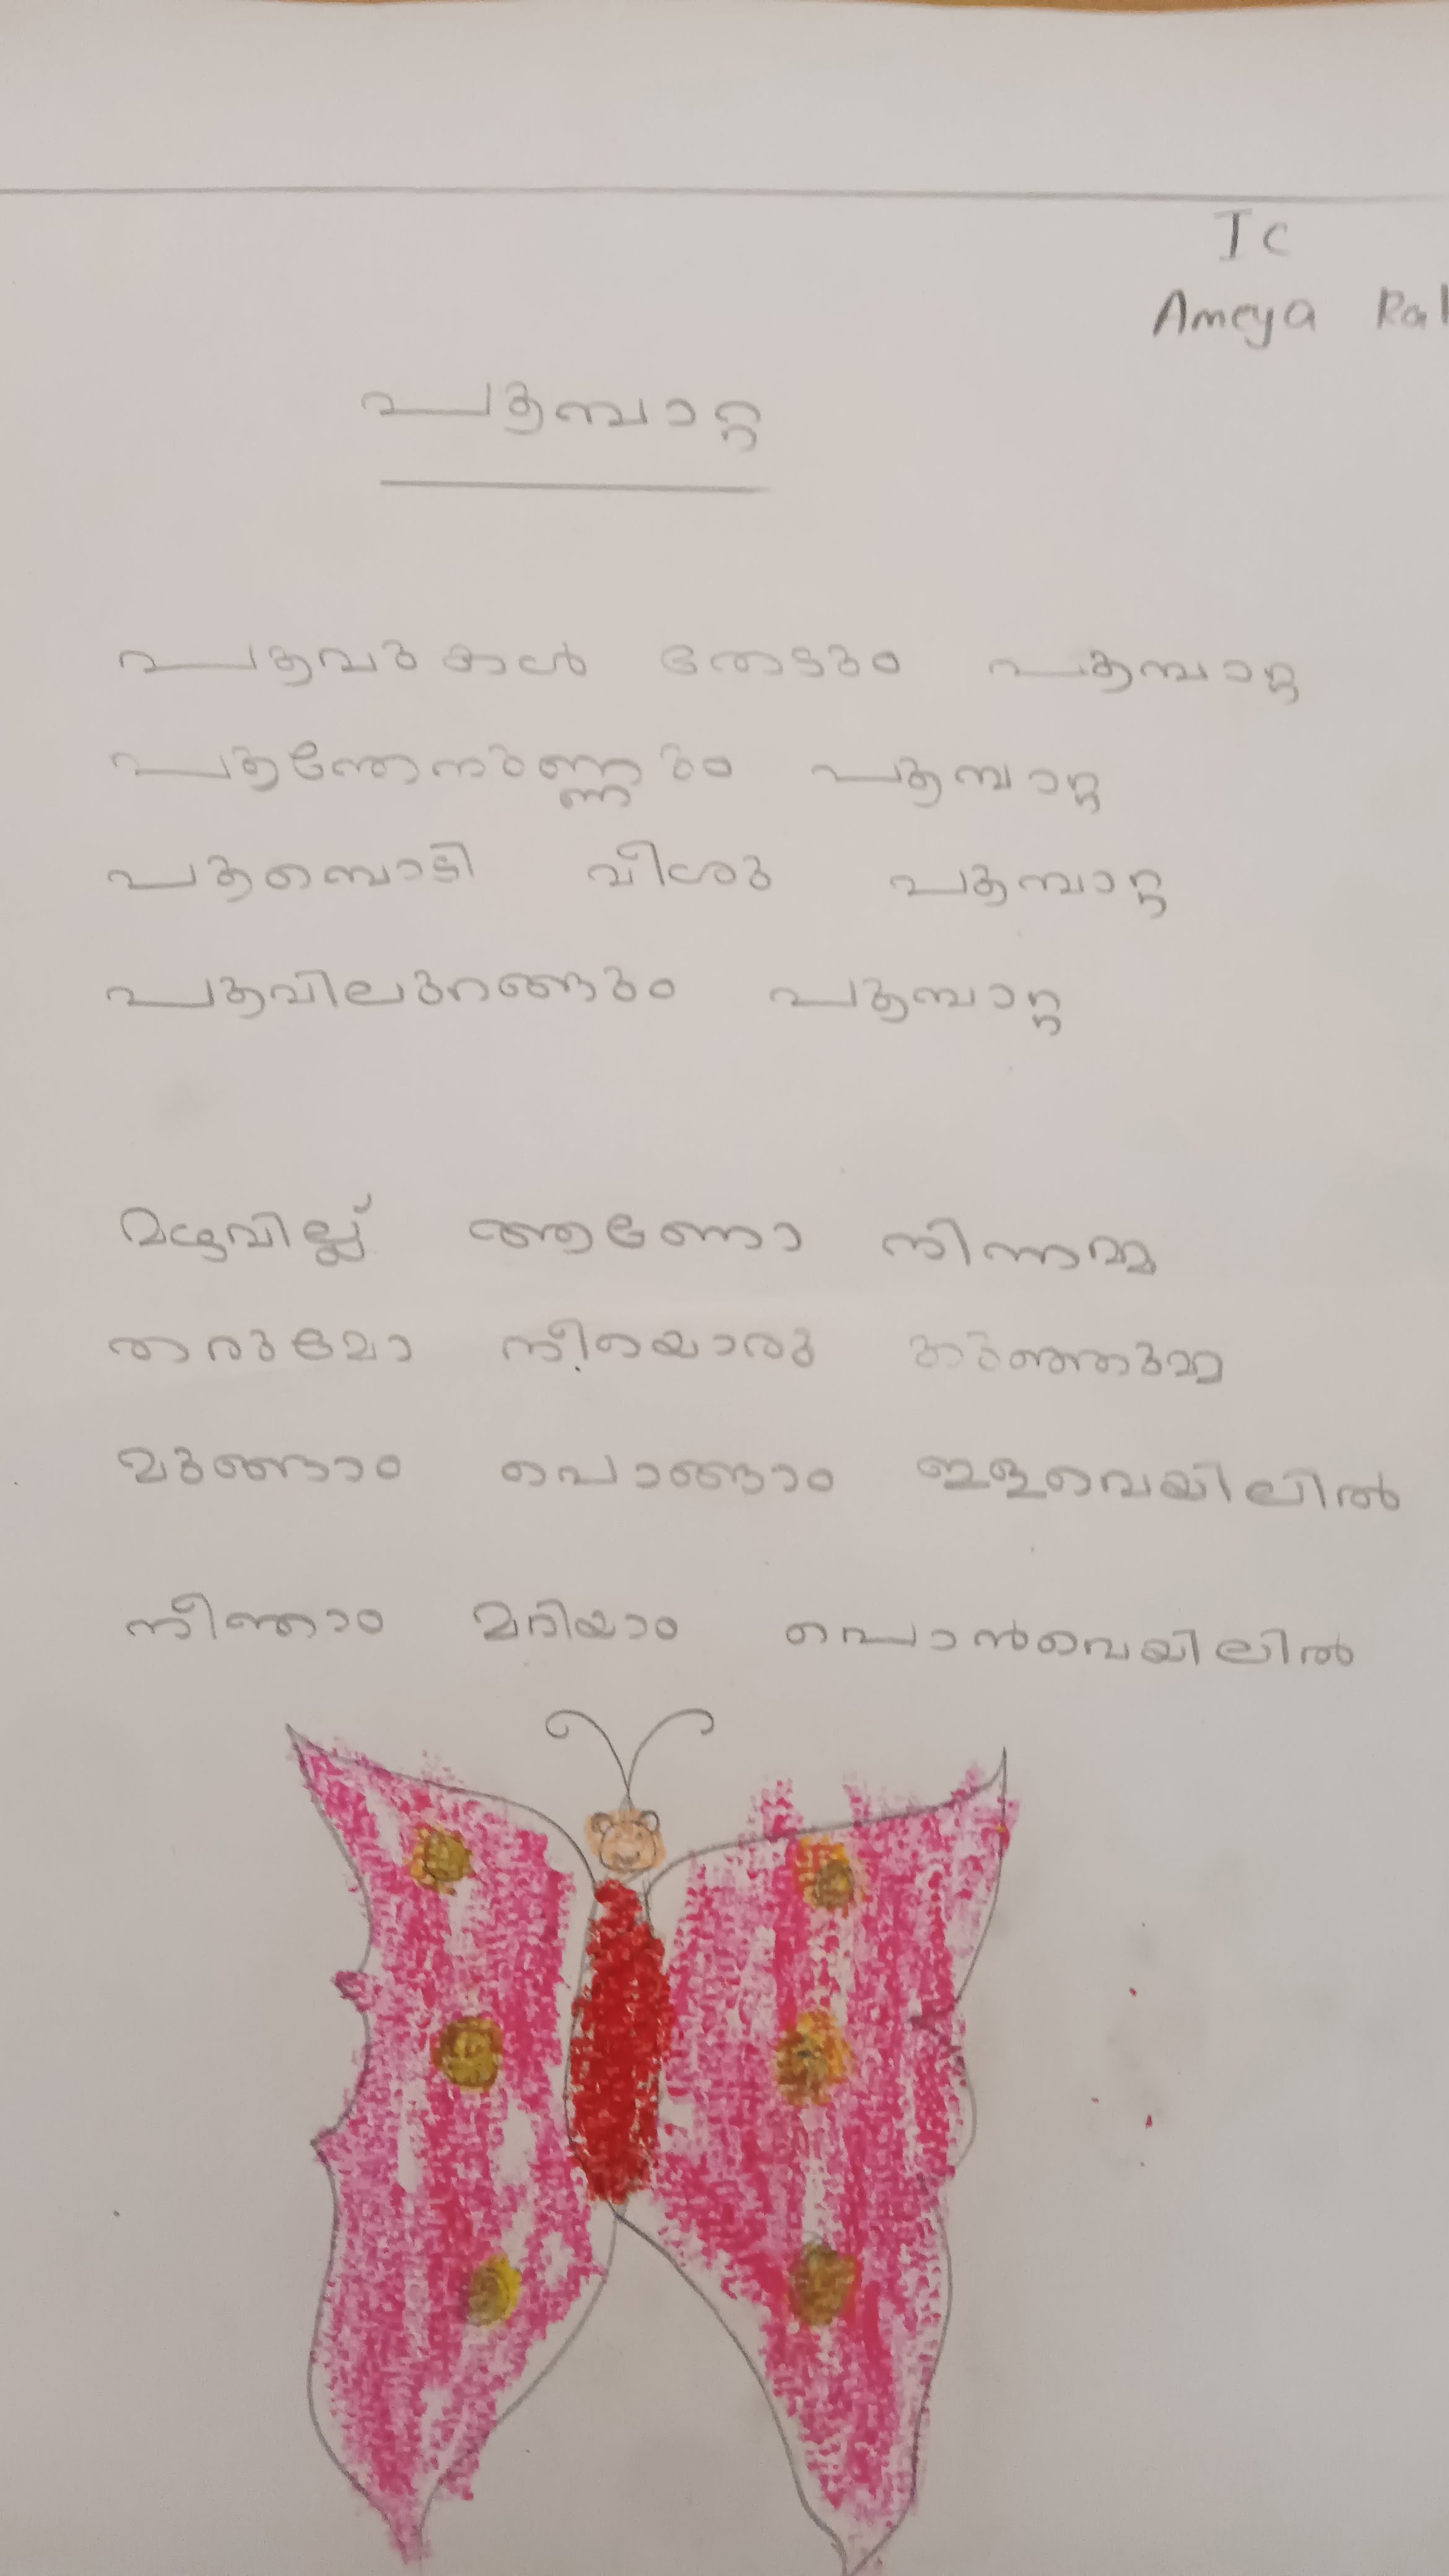 I C
Ameya Ral
പൂമ്പാറ്റ
പൂവുകൾ തേടും പൂമ്പാറ്റ
പൂന്തേനുണ്ണും പൂമ്പാറ്റ
പൂമ്പൊടി വീശു പൂമ്പാറ്റ
പൂവിലുറങ്ങും പൂമ്പാറ്റ
മഴവില്ല് ആണോ നിന്നമ്മ
തരുമോ നീയൊരു കുഞ്ഞുമ്മ
മുങ്ങാം പൊങ്ങാം ഇളവെയിലിൽ
നീന്താം മറിയാം പൊൻവെയിലിൽ